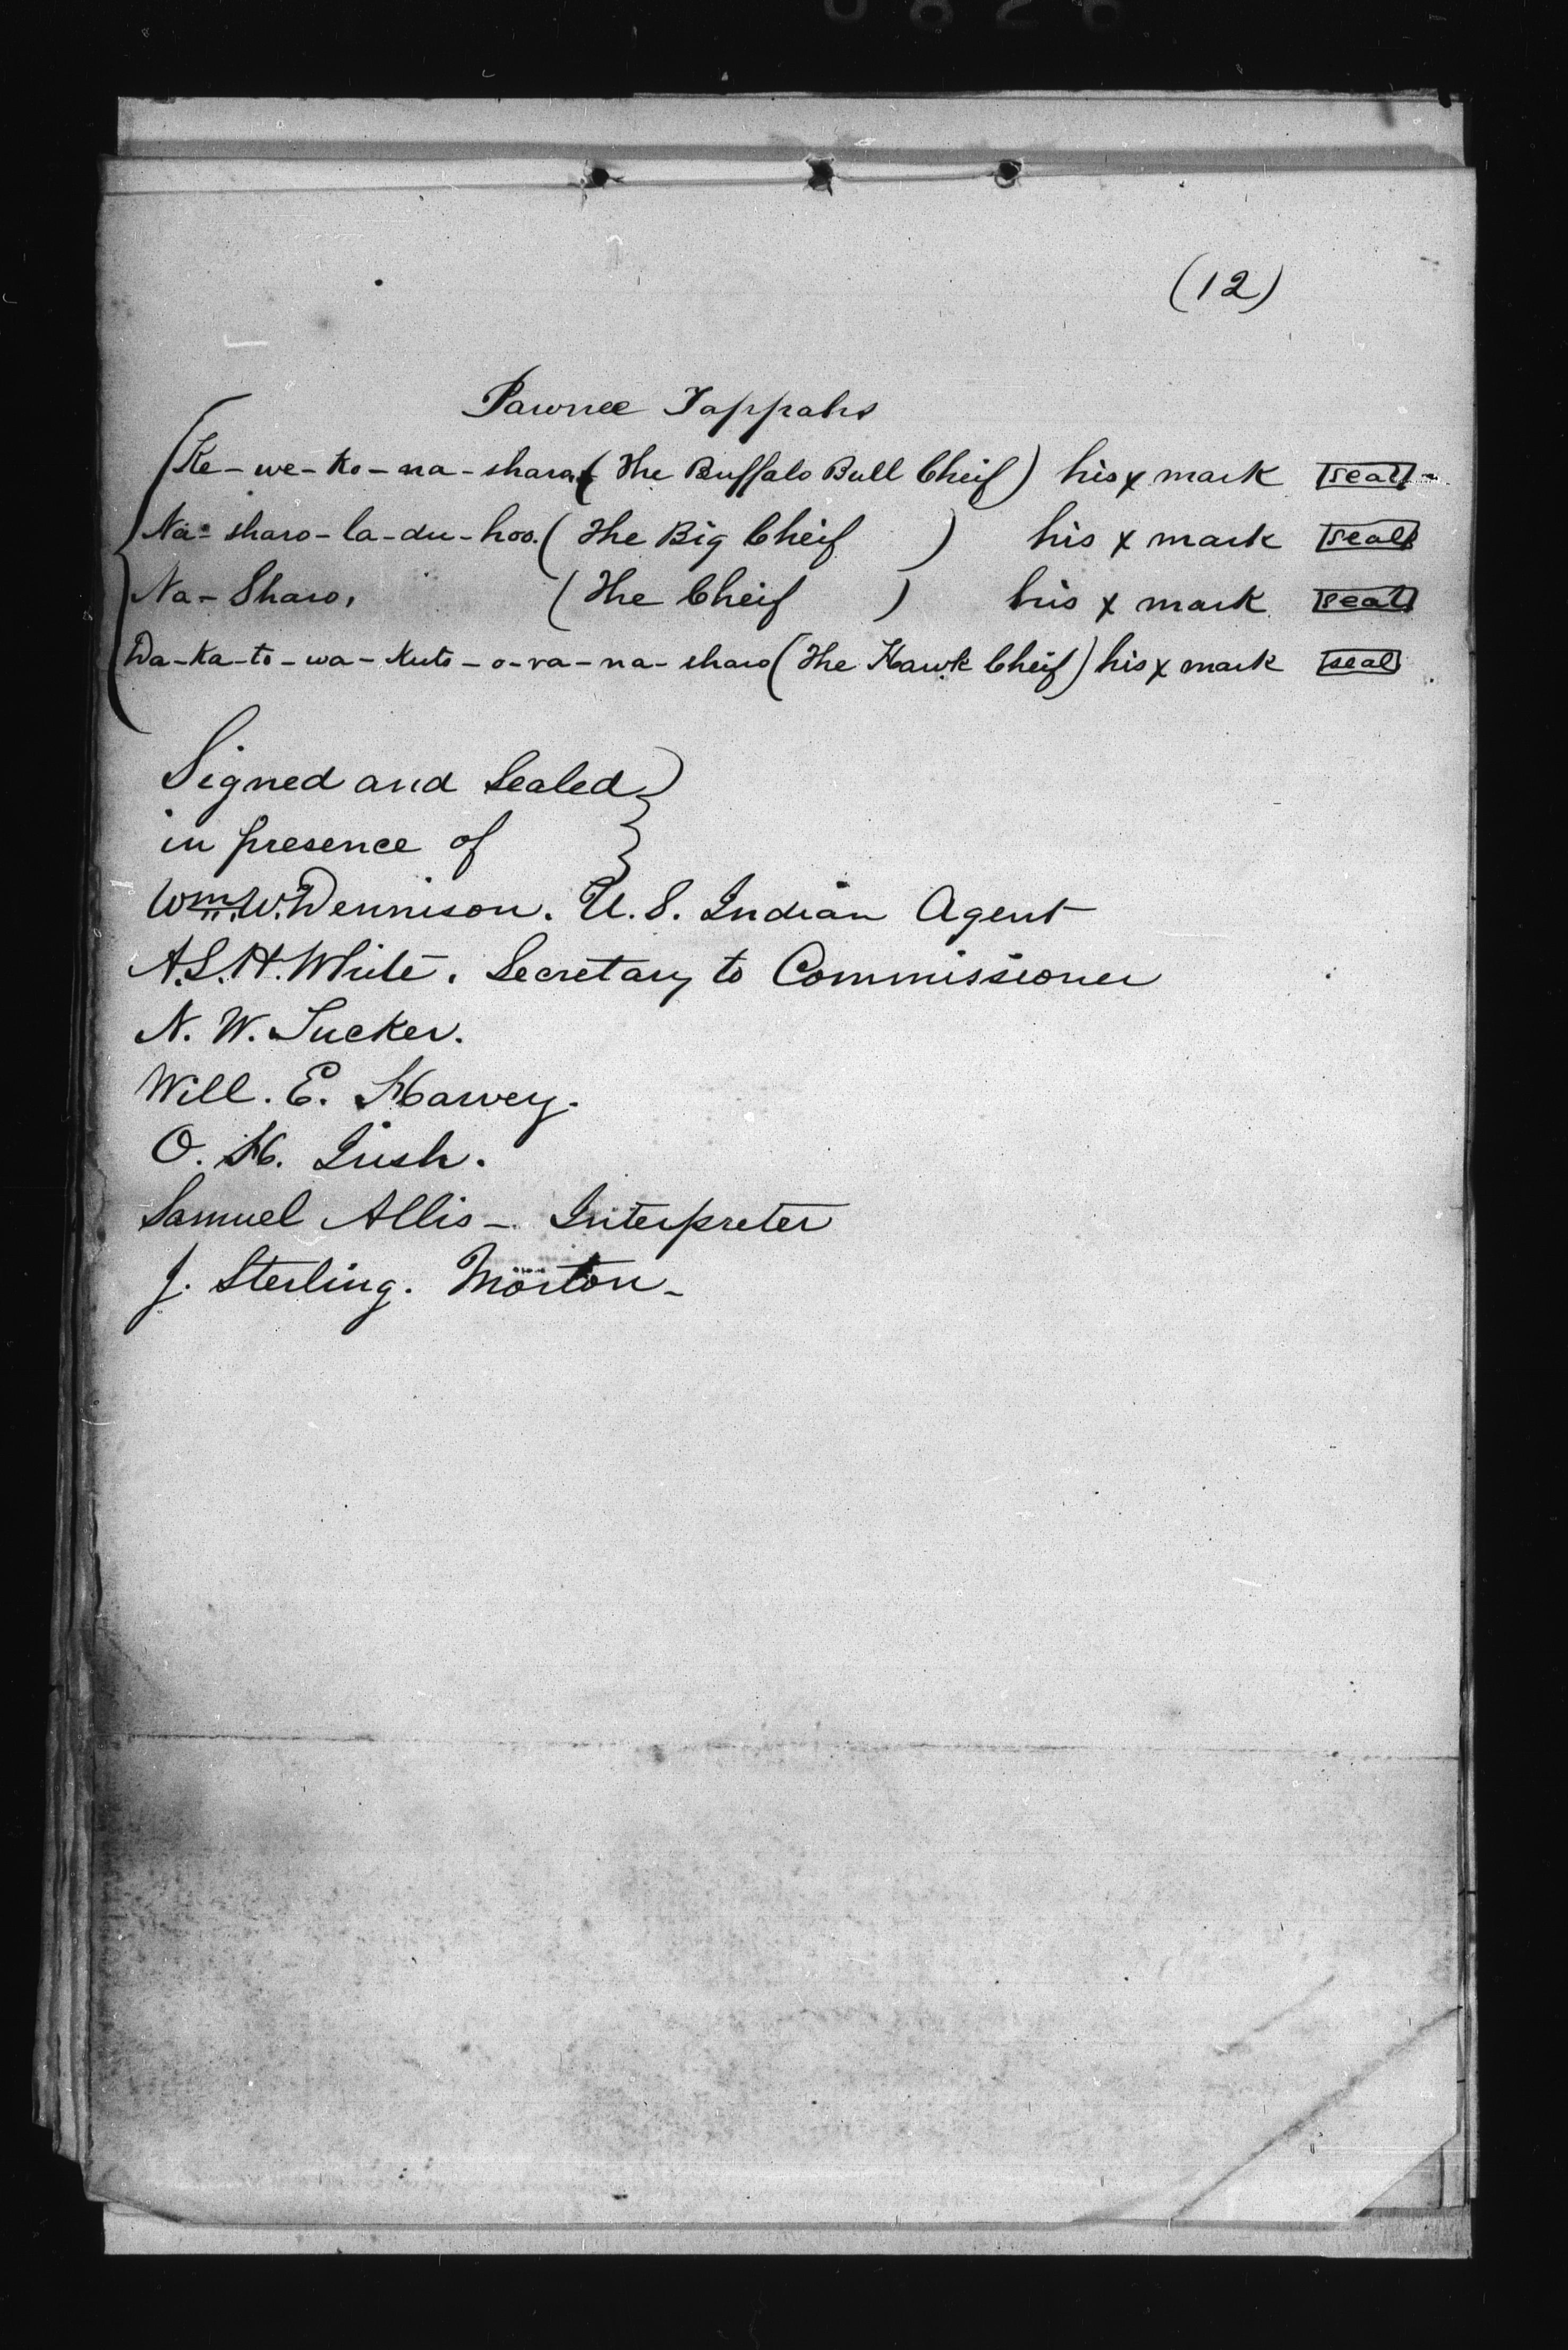 (12)
Pawnee Tappahs
Ke-we-ko-na-sharo (The Buffalo Bull Cheif) his x mark seal
Na-sharo-la-du-hoo. (The Big Cheif) his x mark seal
Na-Sharo, (The Cheif) his x mark seal
Da-ka-to-wa-kuto-o-ra-na-sharo (The Hawk Cheif) his x mark seal
Signed and Sealed
in presence of
Wm. W. Dennison. U.S. Indian Agent
A.S.H. White. Secretary to Commissioner
N. W. Tucker.
Will. E. Harvey.
O. H. Irish.
Samuel Allis - Interpreter
J. Sterling. Morton -